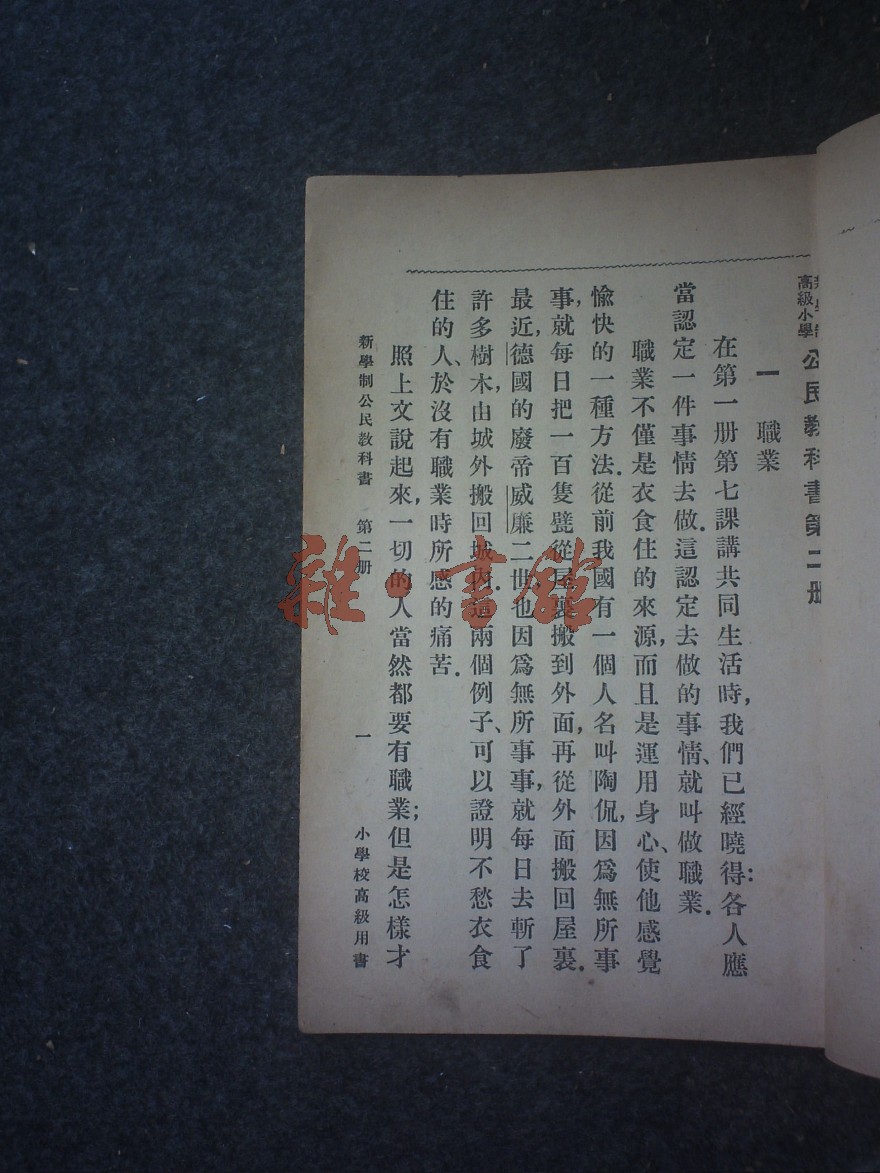 高級小學
公民教科書第二册
一 職業
在第一册第七課講共同生活時，我們已經曉得：各人應
當認定一件事情去做．這認定去做的事情、就叫做職業．
職業不僅是衣食住的來源，而且是運用身心、使他感覺
愉快的一種方法．從前我國有一個人名叫陶侃，因爲無所事
事，就每日把一百隻甓從屋裏搬到外面，再從外面搬回屋裏．
最近，德國的廢帝威廉二世、也因爲無所事事，就每日去斬了
許多樹木，由城外搬回城內．這兩個例子、可以證明不愁衣食
住的人、於沒有職業時所感的痛苦．
照上文說起來，一切的人當然都要有職業；但是怎樣才
新學制公民教科書 第二册 一 小學校高級用書
雜·書館